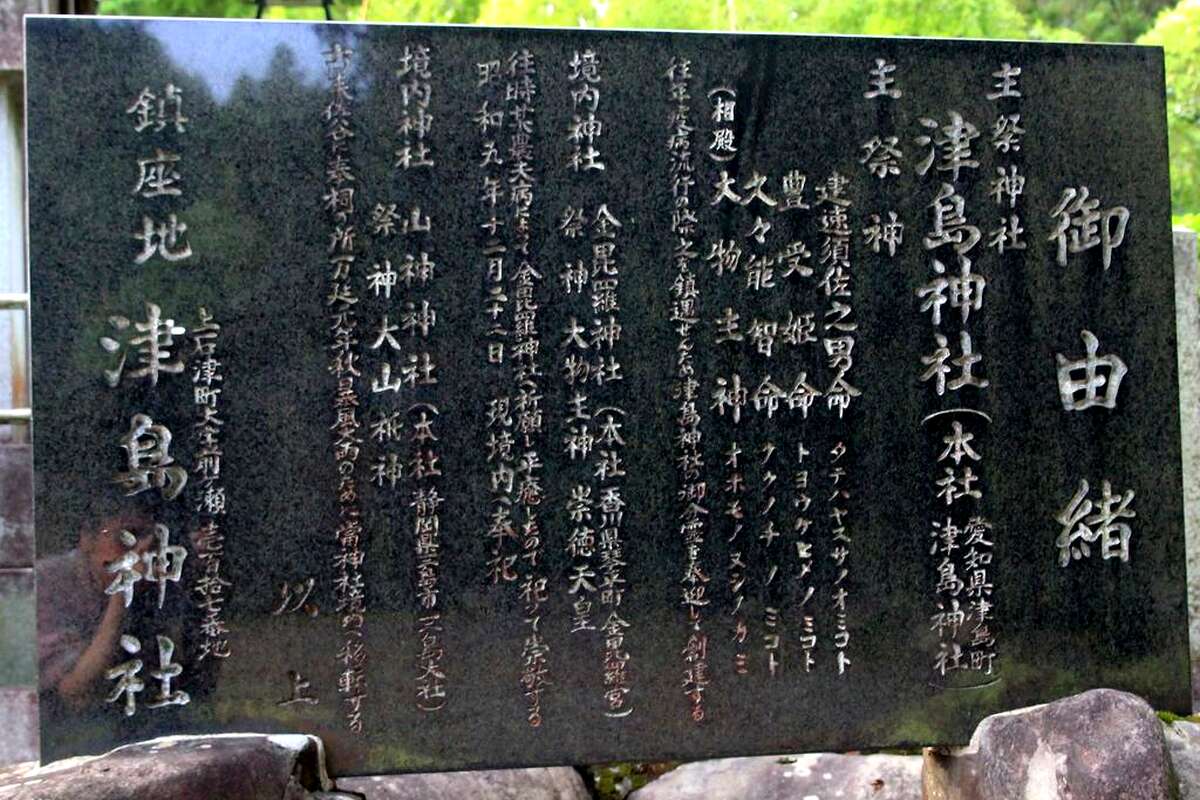 御由緒
主祭神社
津島神社（本社 愛知県津島町 津島神社）
主祭神
建速須佐之男命 タテハヤスサノオミコト
豊受姫命 トヨウケヒメノミコト
久々能智命 ククノチノミコト
（相殿）大物主神 オホモノヌシノカミ
往年疫病流行の際之を鎮遏せんため津島神社の御分霊を奉迎して創建する
境内神社 金毘羅神社（本社 香川県琴平町 金毘羅宮）
祭神 大物主神 崇徳天皇
往時某農夫病にて金毘羅神社へ祈願し平癒したので祀って崇敬する
昭和九年十二月二十二日 現境内へ奉祀
境内神社 山神神社（本社 静岡県三島市 三島大社）
祭神 大山祇神
古来 谷に奉祠 所万延元年秋暴風雨のために当神社境内へ移転する
以上
鎮座地 上岸津町大字前ノ瀬壱百拾七番地
津島神社